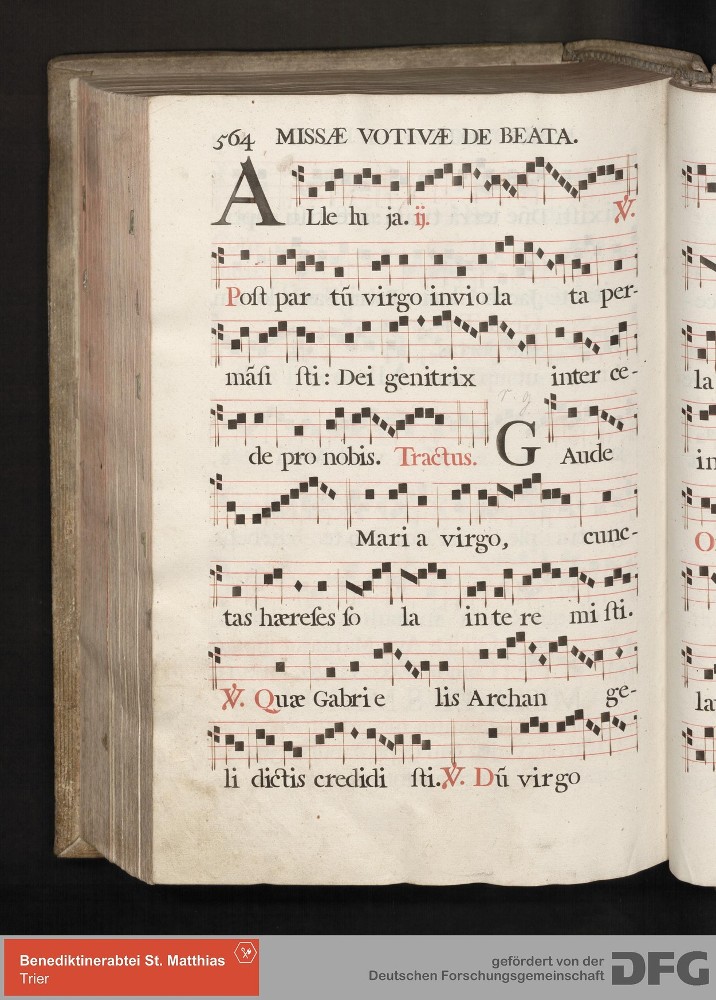 564 MISSÆ VOTIVÆ DE BEATA.
ALle lu ja. ij. ℣.
Poſt par tū virgo invio la ta per-
māſi ſti: Dei genitrix inter ce-
de pro nobis. Tractus. GAude
Mari a virgo, cunc-
tas hæreſes ſo la in te re mi ſti.
℣. Quæ Gabri e lis Archan ge-
li dictis credidi ſti. ℣. Dū virgo
la
in
O
la
Benediktinerabtei St. Matthias
Trier
gefördert von der
Deutschen Forschungsgemeinschaft DFG